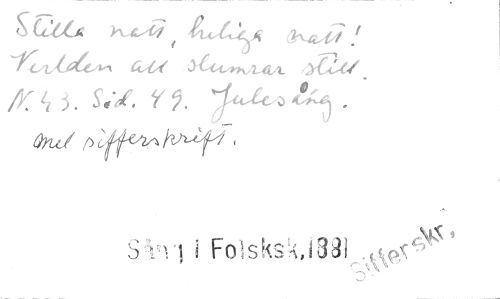 Stilla natt, heliga natt!
Verlden all slumrar still.
N. 43. Sid. 49. Julesång.
mel sifferskrift.
Sång i Folsksk, 1881
Sifferskr,